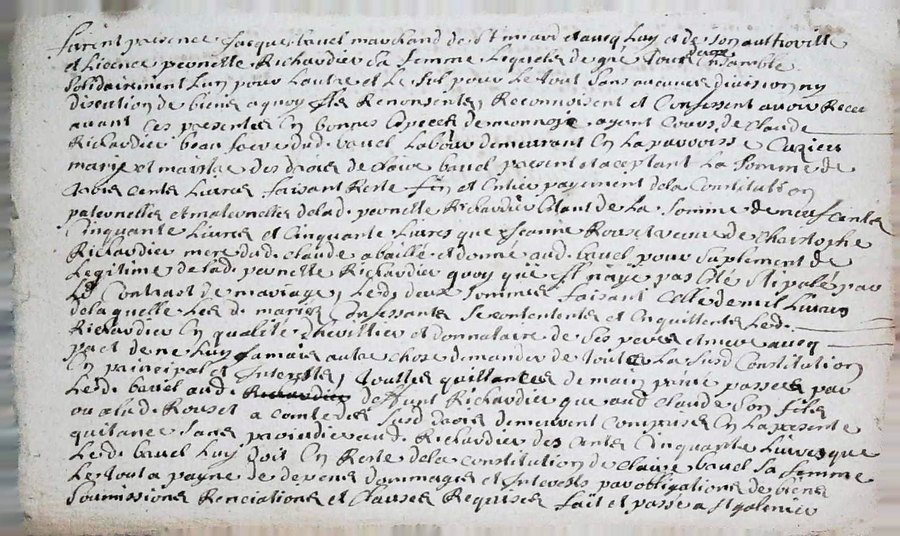 furent presence Jacque bauel marchand de St miard et aucq luy et de son authorité
et licence pernette Richardier sa femme lesquelles de gré tous deux ensamble
solidairement lun pour lautre et le sul pour le tout sans aucunes diuision ny
discution de biens a quoy ils Renonsentes, Reconnoissent et Confessent auoir Receu
auant ces presentes En bonnes Especes de monnoye ayant cours, de claude
Richardier beau frere dud. bauel labour demeurant En la parroisse Cuzieu
marie et maistre des droies de claire bauel present et aceptant la somme de
trois cents liures faisant Reste fin et Entier payement dela Constitution
paternelles et maternelles delad. pernette Richardier Estant de la somme de neuf centes
Cinquante liures et Cinquante liures que Jeanne Rouset veuue de Christophe
Richardier mere dud. claude a baillé et donné aud. bauel pour suplément de
legitime de lad. pernette Richardier quoy que Il naye pas Esté stipulé par
led. Contrast de mariage, lesd. deux sommes faisant Celle de mil liures
de laquelle les d. maries Confessantes se contentent et Enquittentes led.
Richardier En qualité dherittier et donnataire de ses peres et mere aucq
pact de ne luy Jamais autre chose demander de toutes la susd Constitution
En principal et Interests, touttes quittances de main priué passées par
led. bauel aud. defunt Richardier que aud claude son fils
ou a lad. Rouset a comte des susd droies demeurent comprises En la presente
quitance sans preiudice aud. Richardier des cents Cinquante liures que
led. bauel luy doit En Reste dela constitution de claire bauel sa femme
Le tout a payne de depens dommages et Interests par obligations de biens
soumissions Renonciations et clauses Requises fait et passé a St galmier